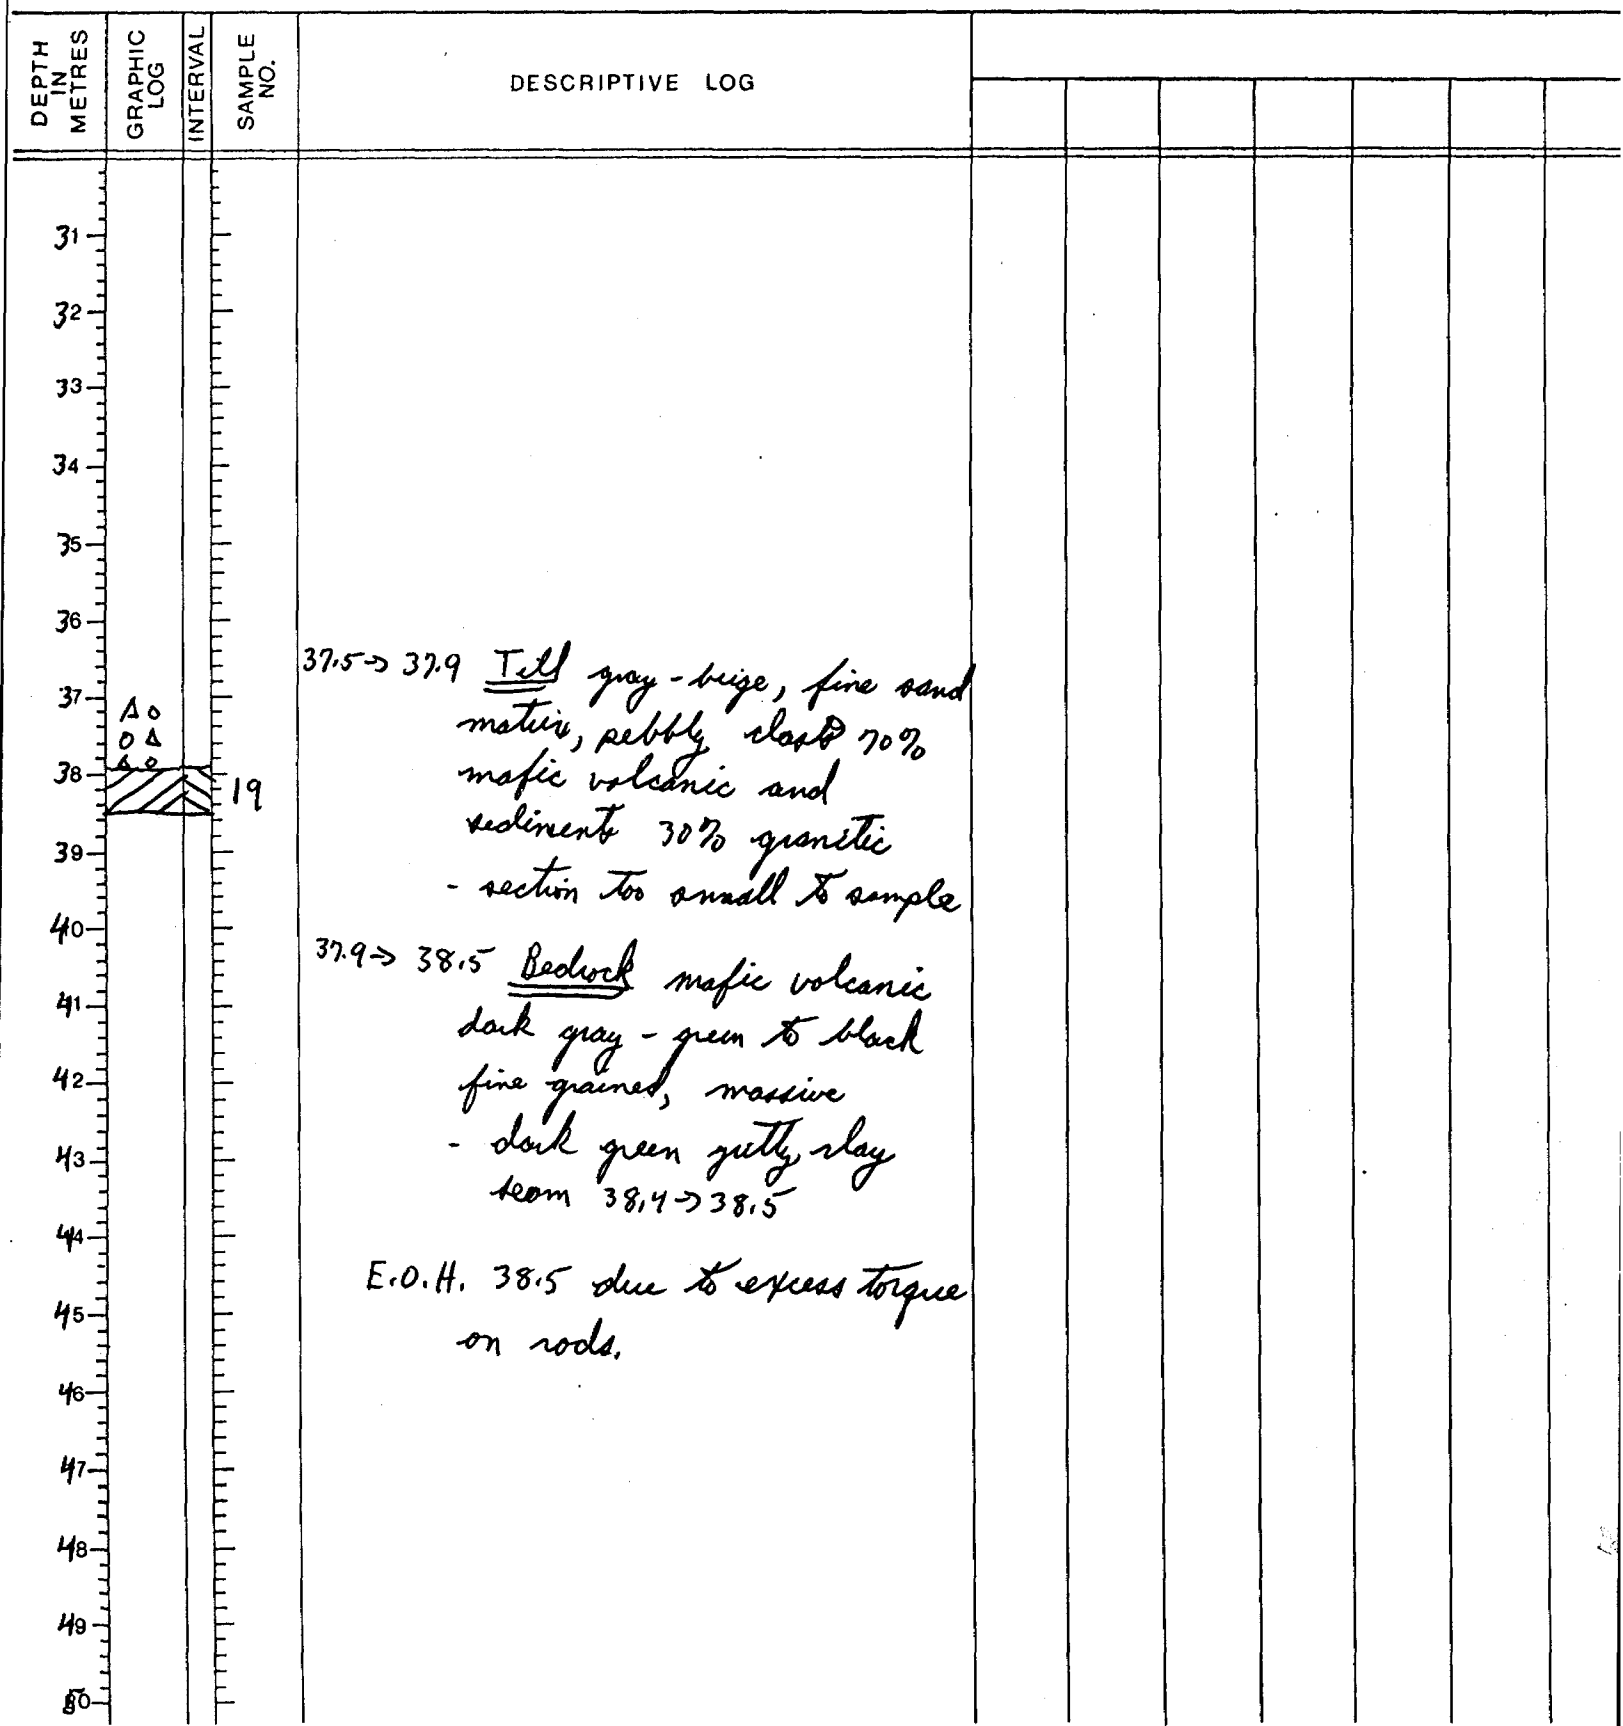 DEPTH IN METRES
GRAPHIC LOG
INTERVAL
SAMPLE NO.
DESCRIPTIVE LOG
31
32
33
34
35
36
37
38
39
40
41
42
43
44
45
46
47
48
49
50
19
37.5→ 37.9 Till gray-beige, fine sand
matrix, pebbly clasts 70%
mafic volcanic and
sediments 30% granitic
- section too small to sample
37.9→ 38.5 Bedrock mafic volcanic
dark gray-green to black
fine grained, massive
- dark green gritty clay
seam 38.4→38.5
E.O.H. 38.5 due to excess torque
on rods.